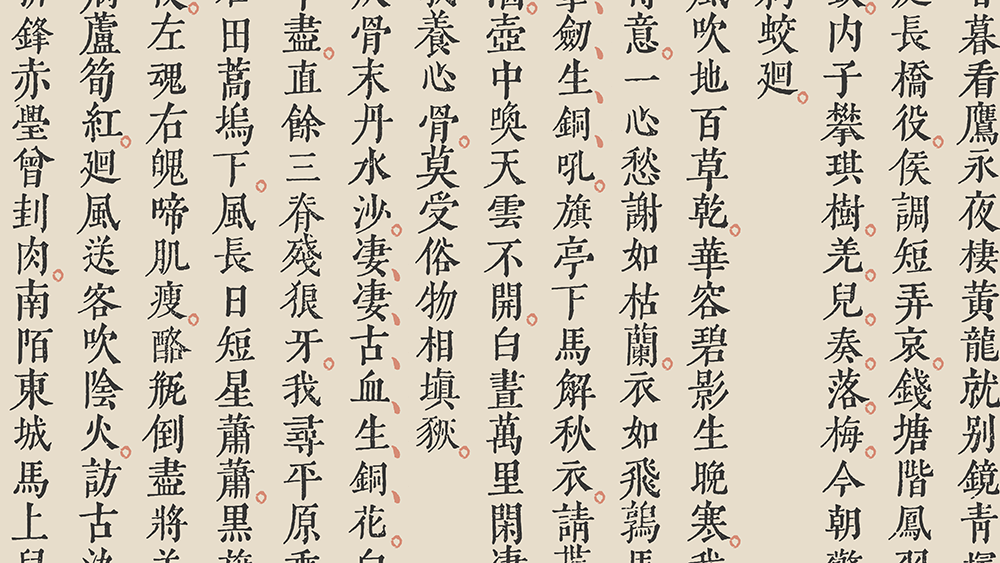 暮看鷹永夜棲黃龍就别鏡青
長橋役。侯調短弄哀。錢塘階鳳
内子攀琪樹。羌。兒。奏。落。梅。今朝擎
蛟廻。
風吹地百草乾。華容碧影生晚寒。我
意。一心愁謝如枯蘭。衣如飛鶉馬
劒、生、銅、吼。旗亭下馬解秋衣。請貰
酒壺中喚天雲不開。白晝萬里閑凄
我養心骨。莫受俗物相塡豥。
骨末丹水沙。凄、凄、古、血、生、銅、花。白
盡。直餘三脊殘狼牙。我尋平原乘
田蒿塢下。風長日短星蕭蕭。黑旗
左魂右魄啼肌瘦。酪瓶倒盡將羊
蘆筍紅。廻風送客吹陰火。訪古
鋒赤璺曾刲肉。南陌東城馬上